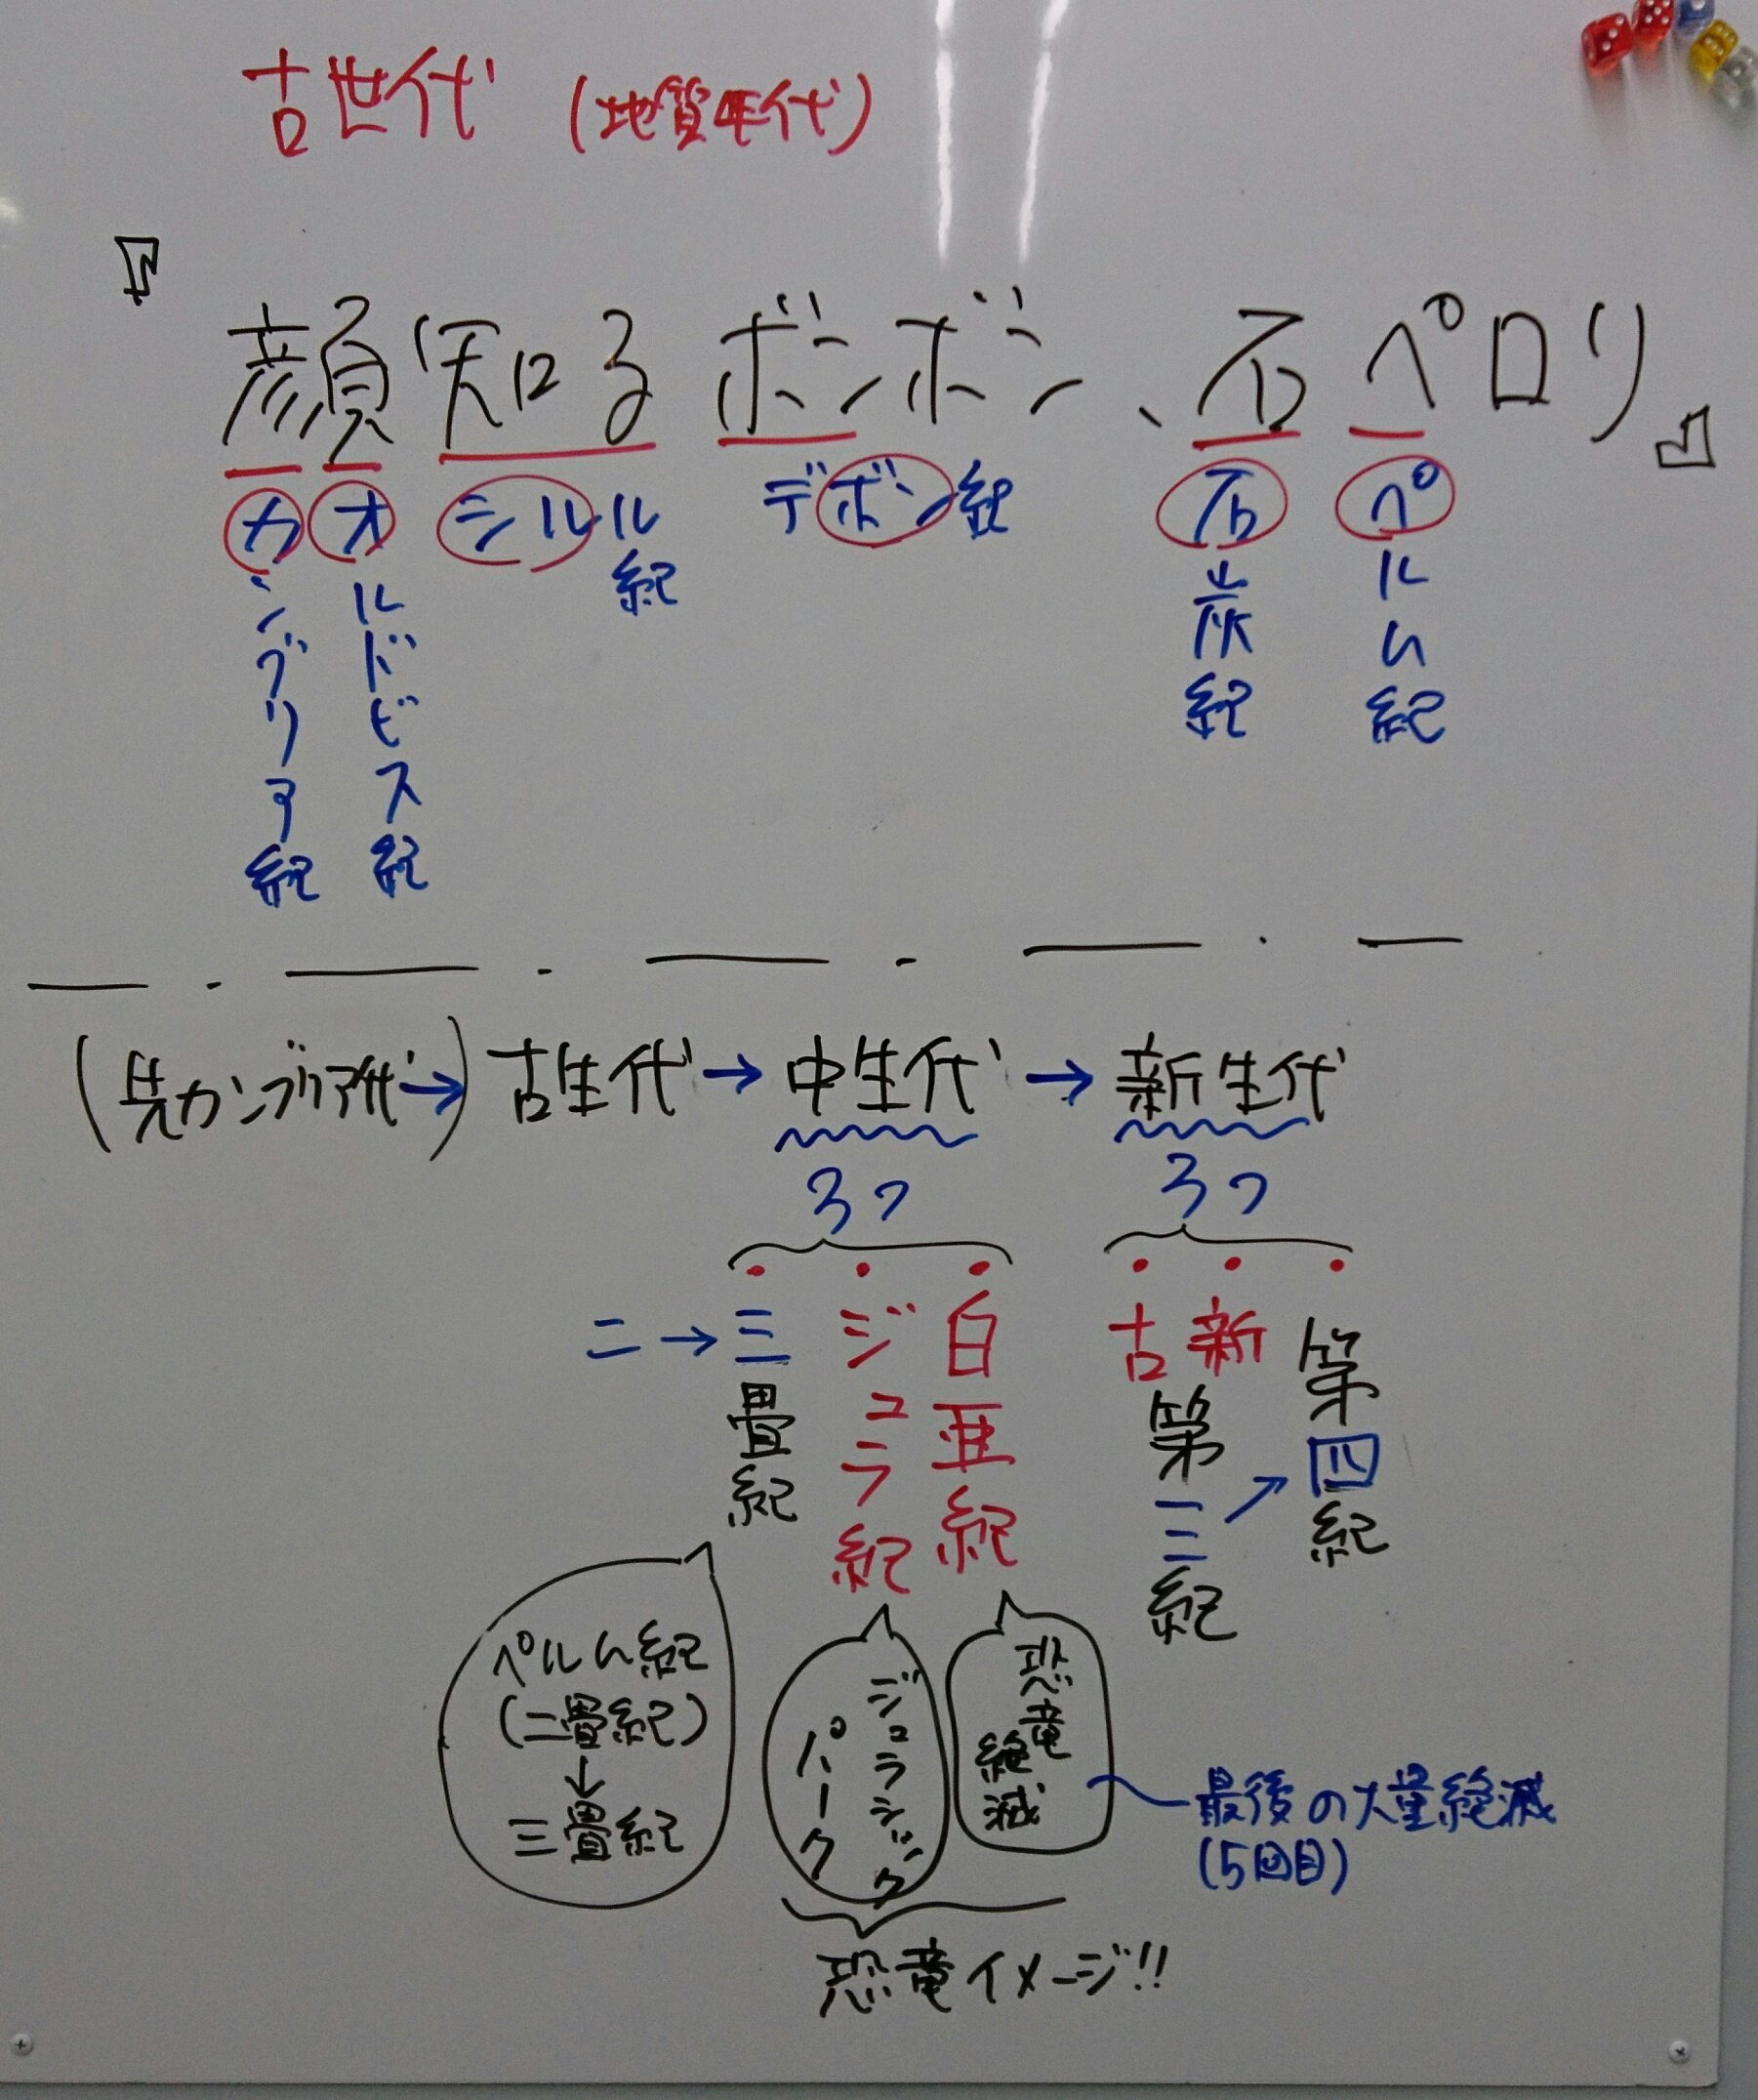 古世代 (地質年代)
『顔知るボンボン、石ペロリ』
カンブリア紀
オルドビス紀
シルル紀
デボン紀
石炭紀
ペルム紀
(先カンブリア代→) 古生代 → 中生代 → 新生代
3つ
3つ
二→三畳紀
ジュラ紀
白亜紀
古新
第三紀
第四紀
ペルム紀
(二畳紀)
↓
三畳紀
ジュラシック
パーク
恐竜
絶滅
最後の大量絶滅
(5回目)
恐竜イメージ!!